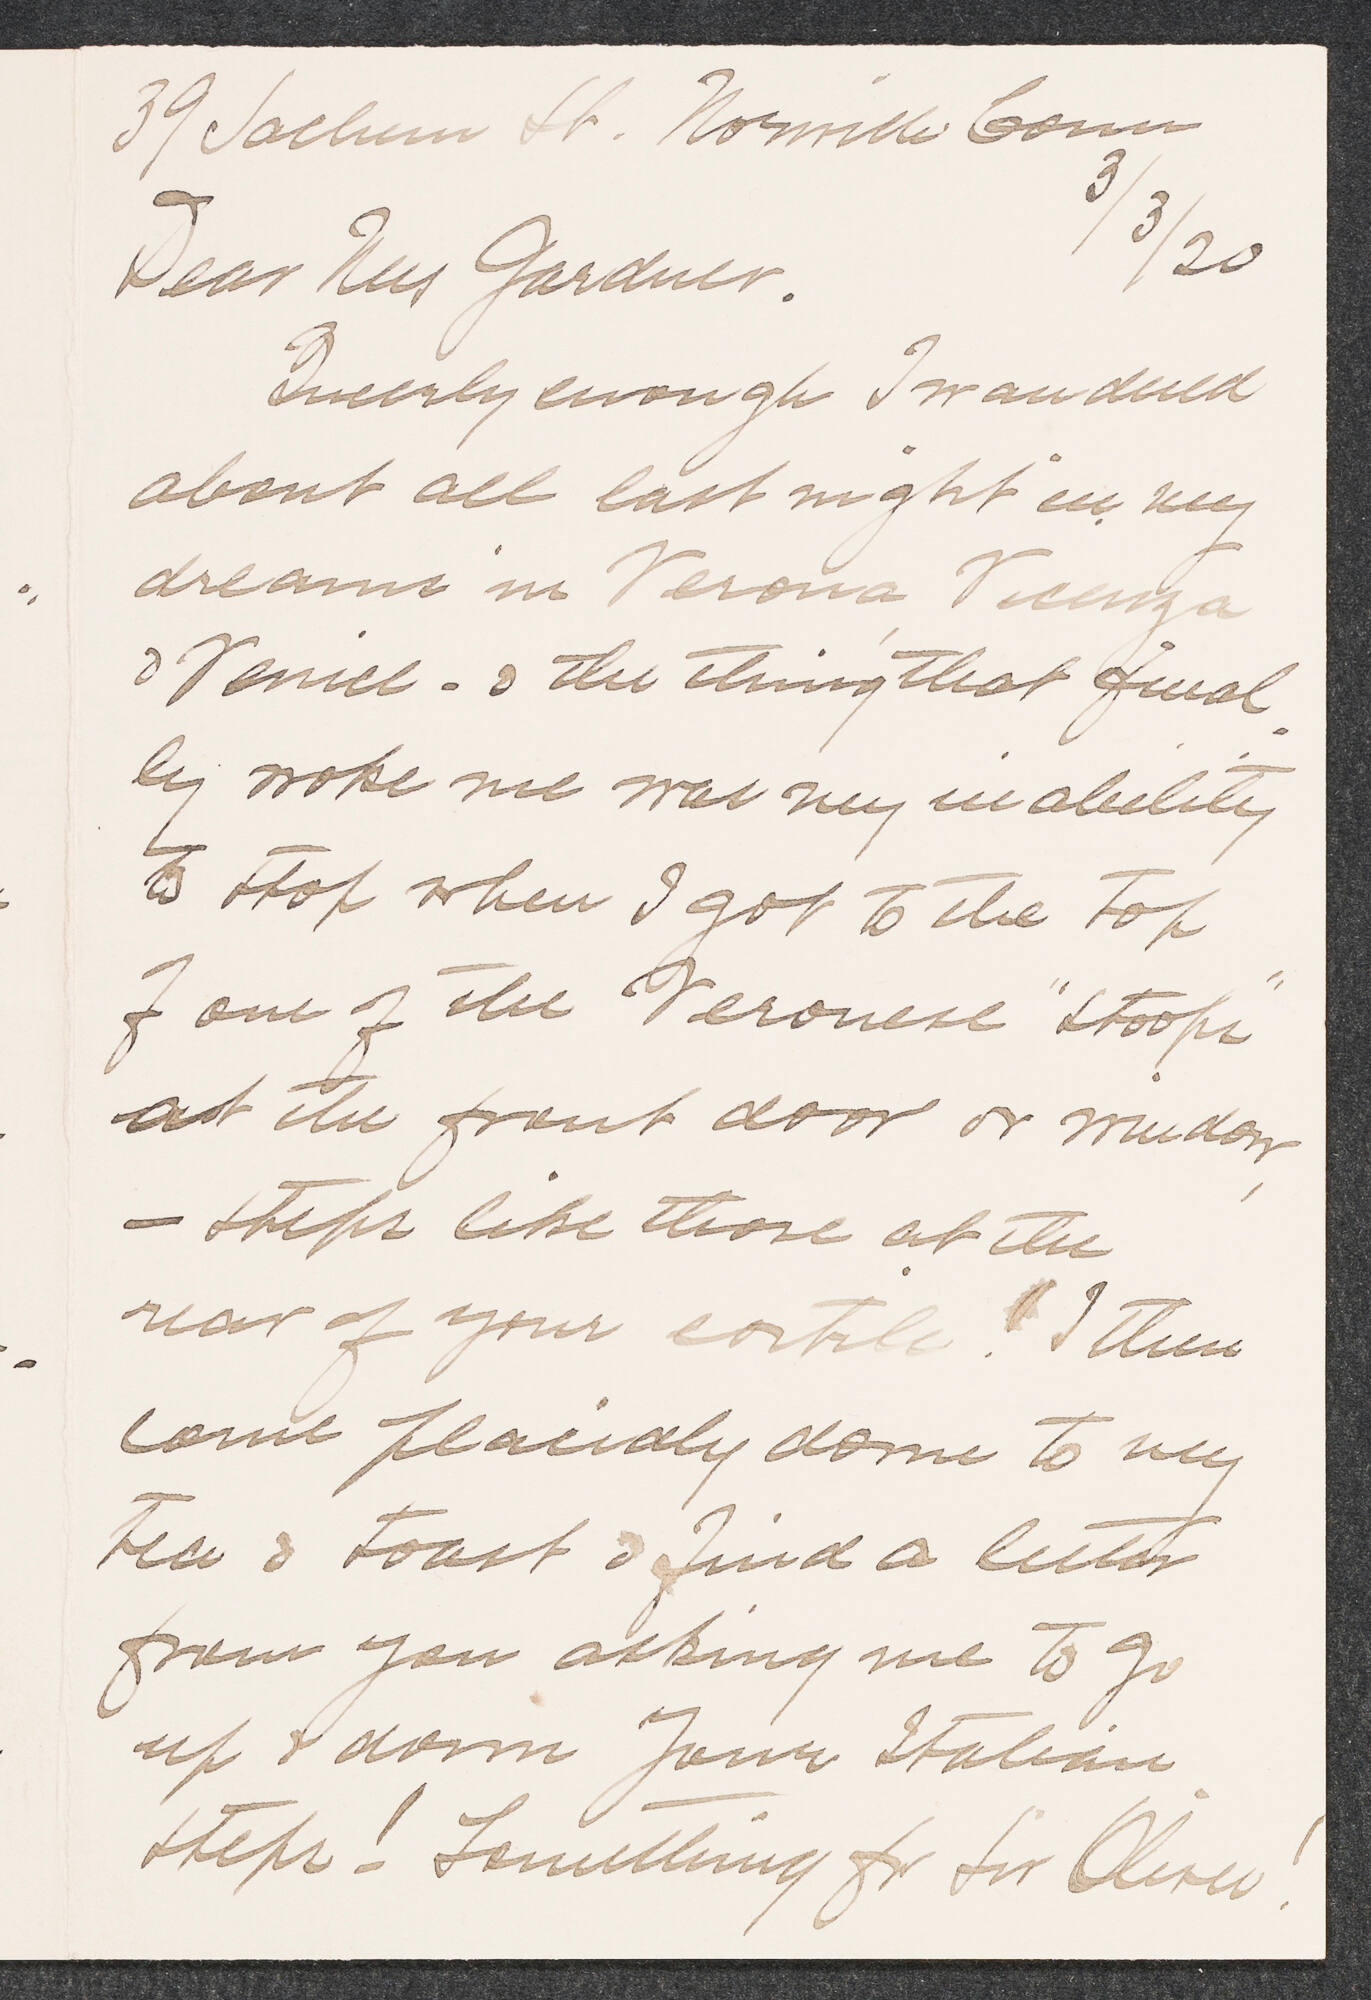 39 Sachem St. Norwich Conn
3/3/20
Dear Mrs Gardner.
Queerly enough I wandered
about all last night in my
dreams in Verona, Vicenza
& Venice - & the thing that final-
ly woke me was my inability
to stop when I got to the top
of one of the Veronese "stoops"
at the front door or window,
- steps like those at the
rear of your cortile! I then
come placidly down to my
tea & toast & find a letter
from you asking me to go
up & down Your Italian
steps! Something for Sir Oliver!